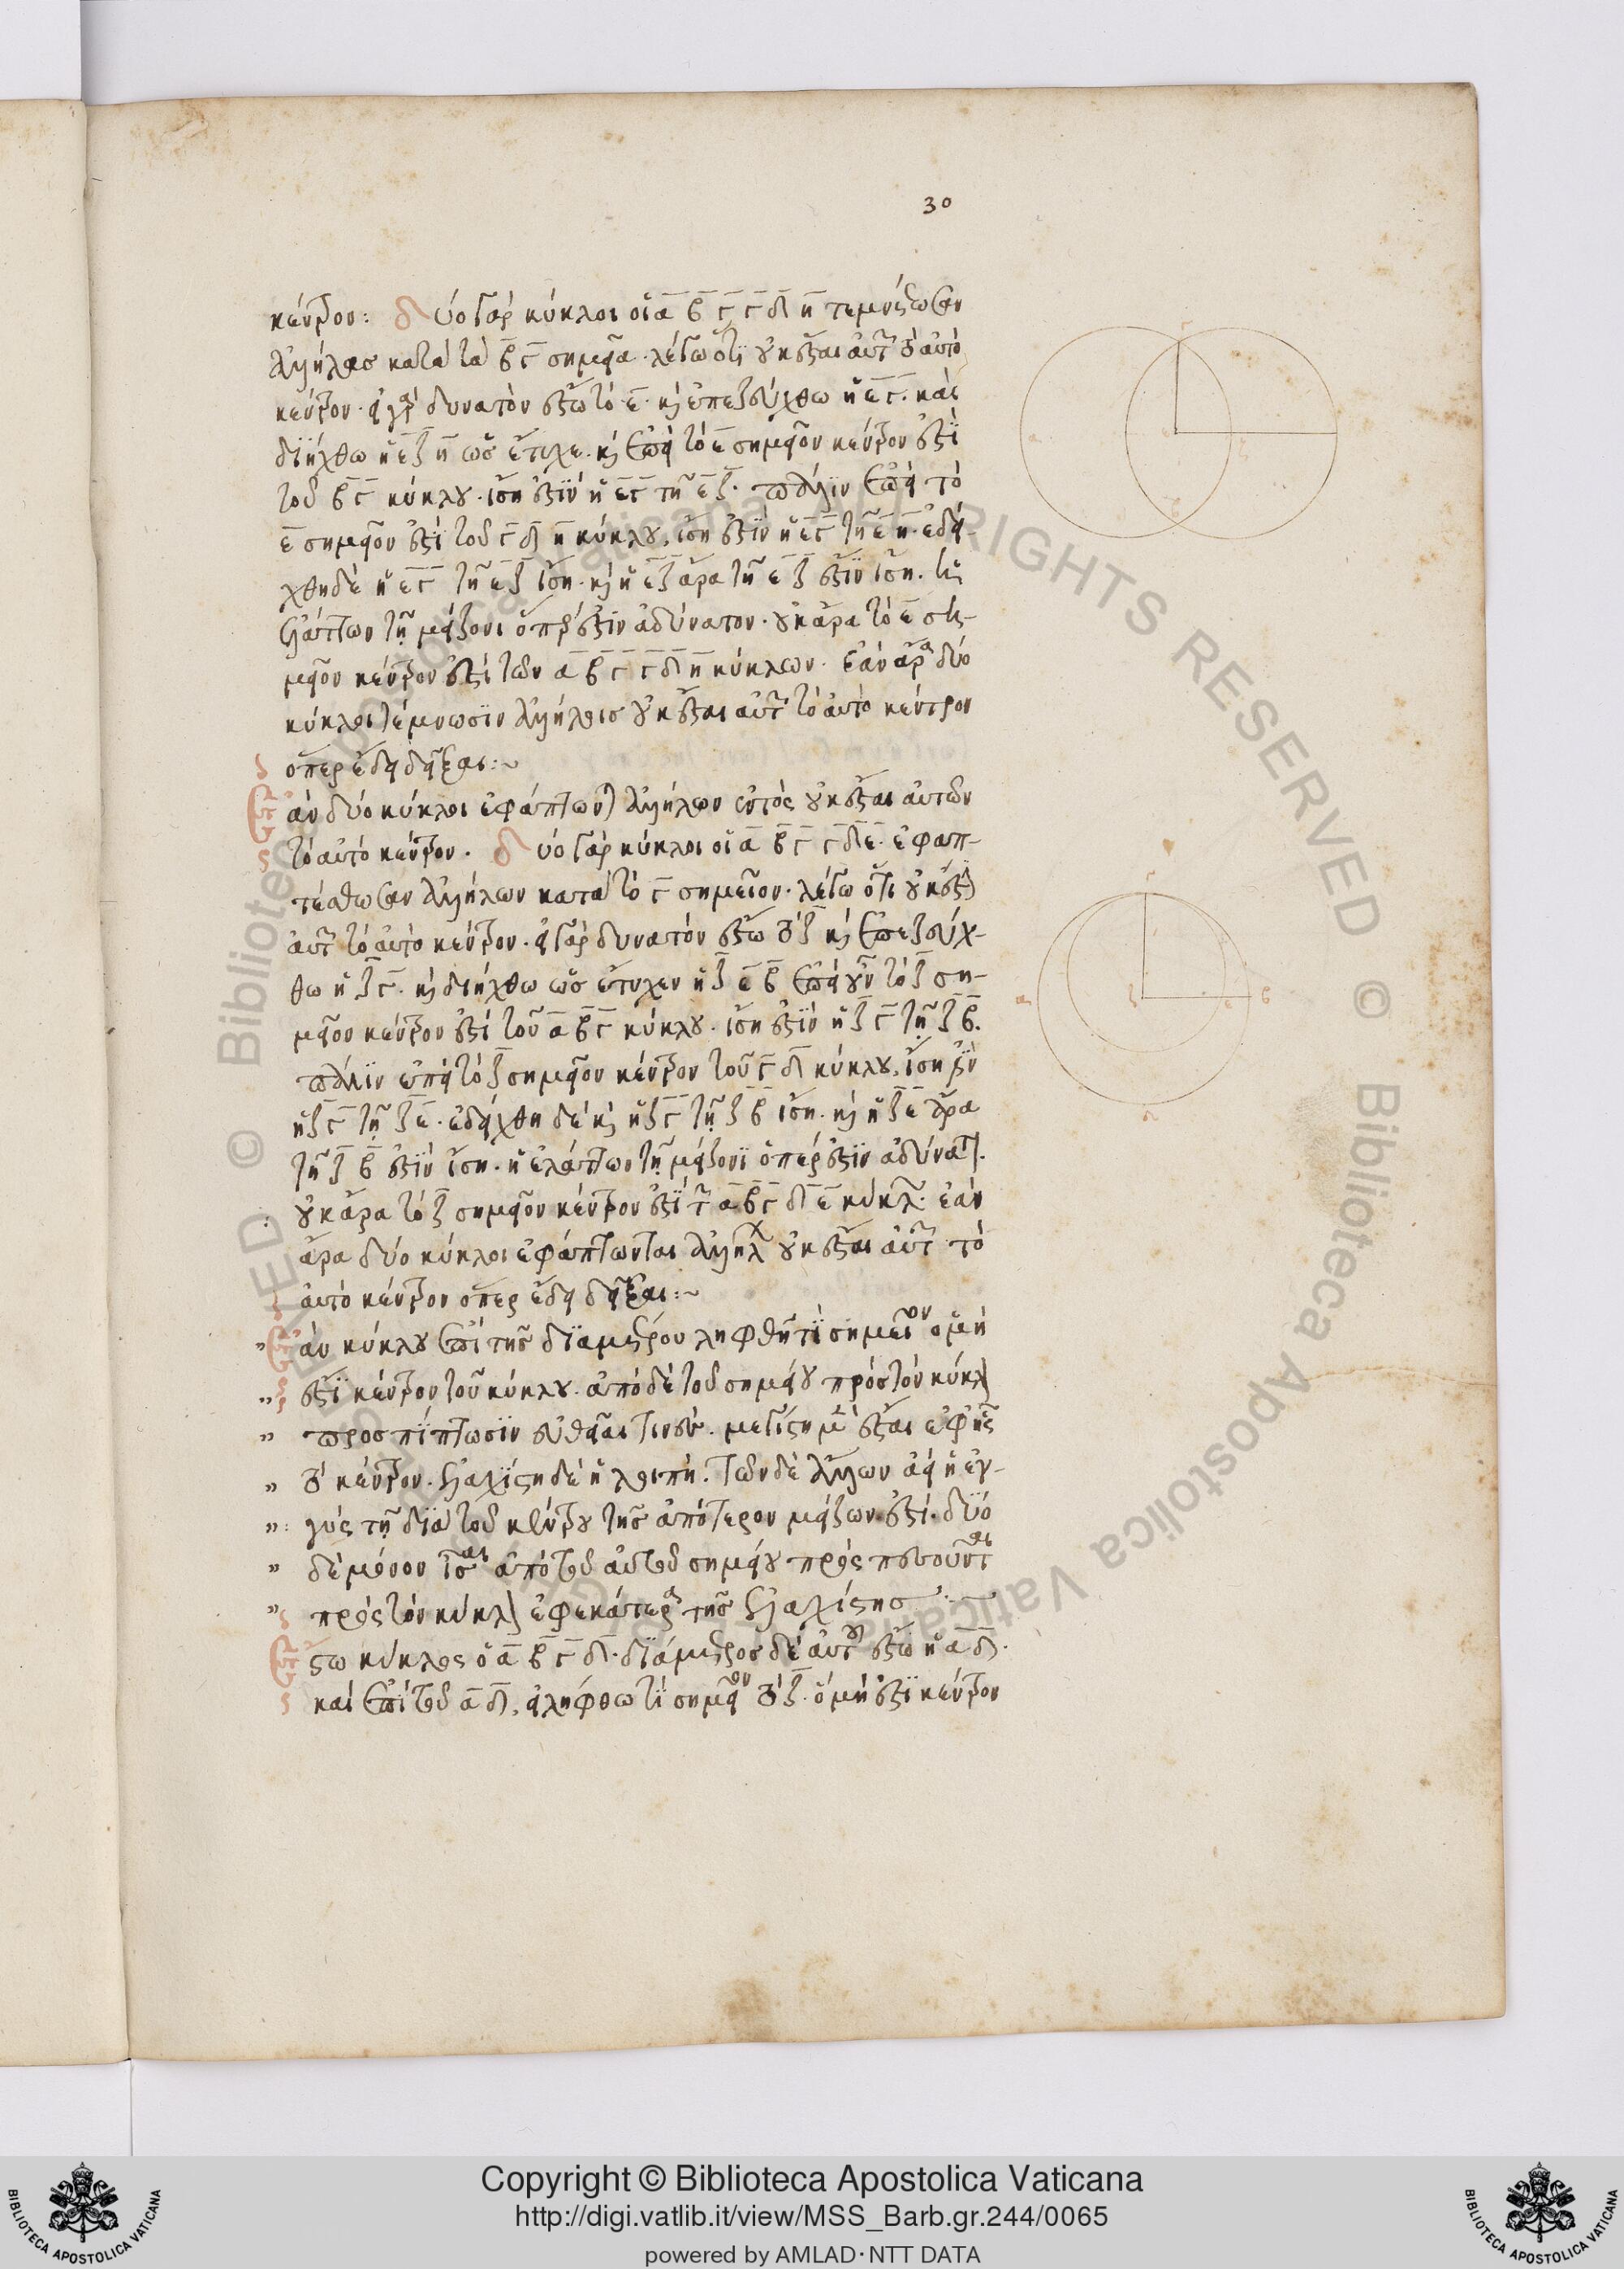 30
κέντρον: δύο γὰρ κύκλοι οἱ α β γ γ δ η τεμνέτωσαν
ἀλλήλους κατὰ τὰ β γ σημεῖα. λέγω ὅτι οὐκ ἔσται αὐτῶν τὸ αὐτὸ
κέντρον. εἰ γὰρ δυνατὸν ἔστω τὸ ε. καὶ ἐπεζεύχθω ἡ ε γ. καὶ
διήχθω ἡ ε ζ η ὡς ἔτυχε. καὶ ἐπεὶ τὸ ε σημεῖον κέντρον ἐστὶ
τοῦ β γ κύκλου. ἴση ἐστὶν ἡ ε γ τῇ ε ζ. πάλιν ἐπεὶ τὸ
ε σημεῖον ἐστὶ τοῦ γ δ η κύκλου, ἴση ἐστὶν ἡ ε γ τῇ ε η. ἐδεί-
χθη δὲ ἡ ε γ τῇ ε ζ ἴση. καὶ ἡ ε ζ ἄρα τῇ ε ζ ἐστὶν ἴση. ἡ
ἐλάττων τῇ μείζονι ὅπερ ἐστὶν ἀδύνατον. οὐκ ἄρα τὸ ε ση-
μεῖον κέντρον ἐστὶ τῶν α β γ γ δ η κύκλων. ἐὰν ἄρα δύο
κύκλοι τέμνωσιν ἀλλήλοις οὐκ ἔσται αὐτῶν τὸ αὐτὸ κέντρον
ὅπερ ἔδει δεῖξαι:~
ἐὰν δύο κύκλοι ἐφάπτωνται ἀλλήλων ἐντὸς οὐκ ἔσται αὐτῶν
τὸ αὐτὸ κέντρον. δύο γὰρ κύκλοι οἱ α β γ γ δ ε. ἐφαπ-
τέσθωσαν ἀλλήλων κατὰ τὸ γ σημεῖον. λέγω ὅτι οὐκ ἔσται
αὐτῶν τὸ αὐτὸ κέντρον. εἰ γὰρ δυνατὸν ἔστω τὸ ζ καὶ ἐπεζεύχ-
θω ἡ ζ γ. καὶ διήχθω ὡς ἔτυχεν ἡ ζ ε β ἐπεὶ οὖν τὸ ζ ση-
μεῖον κέντρον ἐστὶ τοῦ α β γ κύκλου. ἴση ἐστὶν ἡ ζ γ τῇ ζ β.
πάλιν ἐπεὶ τὸ ζ σημεῖον κέντρον τοῦ γ δ κύκλου, ἴση ἐστὶν
ἡ ζ γ τῇ ζ ε. ἐδείχθη δὲ καὶ ἡ ζ γ τῇ ζ β ἴση. καὶ ἡ ζ ε ἄρα
τῇ ζ β ἐστὶν ἴση. ἡ ἐλάττων τῇ μείζονι ὅπερ ἐστὶν ἀδύνατον.
οὐκ ἄρα τὸ ζ σημεῖον κέντρον ἐστὶ τῶν α β γ δ ε κύκλων. ἐὰν
ἄρα δύο κύκλοι ἐφάπτωνται ἀλλήλων οὐκ ἔσται αὐτῶν τὸ
αὐτὸ κέντρον ὅπερ ἔδει δεῖξαι:~
ἐὰν κύκλου ἐπὶ τῆς διαμέτρου ληφθῇ τι σημεῖον ὃ μή
ἐστι κέντρον τοῦ κύκλου. ἀπὸ δὲ τοῦ σημείου πρὸς τὸν κύκλον
προσπίπτωσιν εὐθεῖαι τινές. μεγίστη μὲν ἔσται ἐφ' ἧς
τὸ κέντρον. ἐλαχίστη δὲ ἡ λοιπή. τῶν δὲ ἄλλων ἀεὶ ἡ ἐγ-
γὺς τῇ διὰ τοῦ κέντρου τῆς ἀπότερον μείζων ἐστί. δύο
δὲ μόνον ἴσαι ἀπὸ τοῦ αὐτοῦ σημείου προσπεσοῦνται
πρὸς τὸν κύκλον ἐφ' ἑκάτερα τῆς ἐλαχίστης:~
ἔστω κύκλος ὁ α β γ δ. διάμετρος δὲ αὐτοῦ ἔστω ἡ α δ.
καὶ ἐπὶ τοῦ α δ, εἰλήφθω τι σημεῖον τὸ ζ. ὃ μή ἐστι κέντρον
Copyright © Biblioteca Apostolica Vaticana
http://digi.vatlib.it/view/MSS_Barb.gr.244/0065
powered by AMLAD·NTT DATA